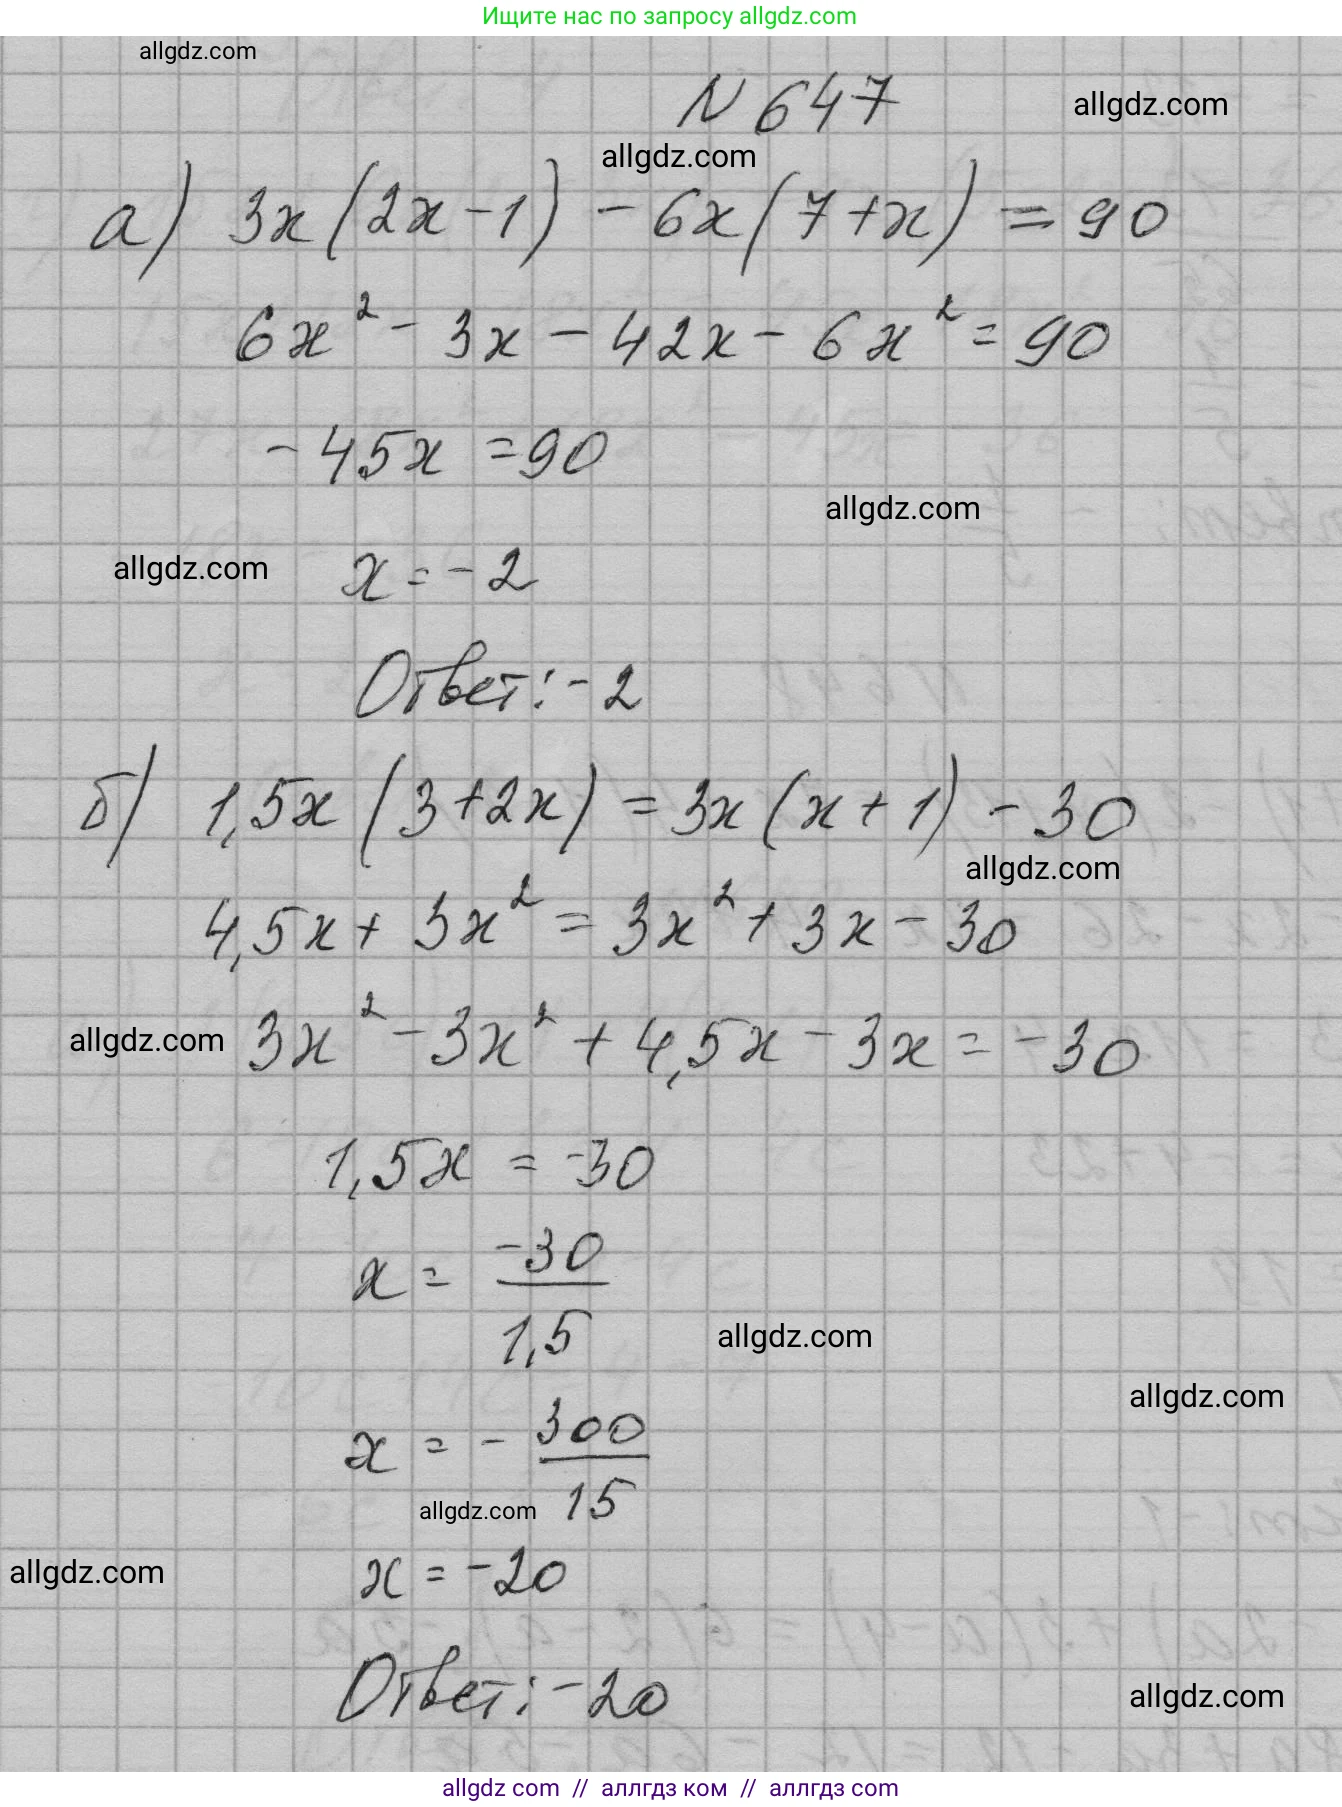 Ищите нас по запросу allgdz.com
allgdz.com
N 647
allgdz.com
allgdz.com
а) 3x(2x-1) - 6x(7+x) = 90
6x² - 3x - 42x - 6x² = 90
-45x = 90
allgdz.com
allgdz.com
x = -2
Ответ: -2
б) 1,5x(3+2x) = 3x(x+1) - 30
allgdz.com
4,5x + 3x² = 3x² + 3x - 30
allgdz.com
3x² - 3x² + 4,5x - 3x = -30
1,5x = -30
x = -30/1,5
allgdz.com
allgdz.com
x = - 300/15
allgdz.com
allgdz.com
x = -20
Ответ: -20
allgdz.com
allgdz.com // аллгдз ком // аллгдз com